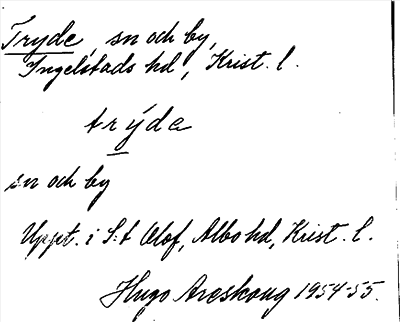 Tryde, sn och by,
Ingelstads hd, Krist. l.
trýde
sn och by
Uppt. i S:t Olof, Albo hd, Krist. l.
Hugo Areskoug 1954-55.